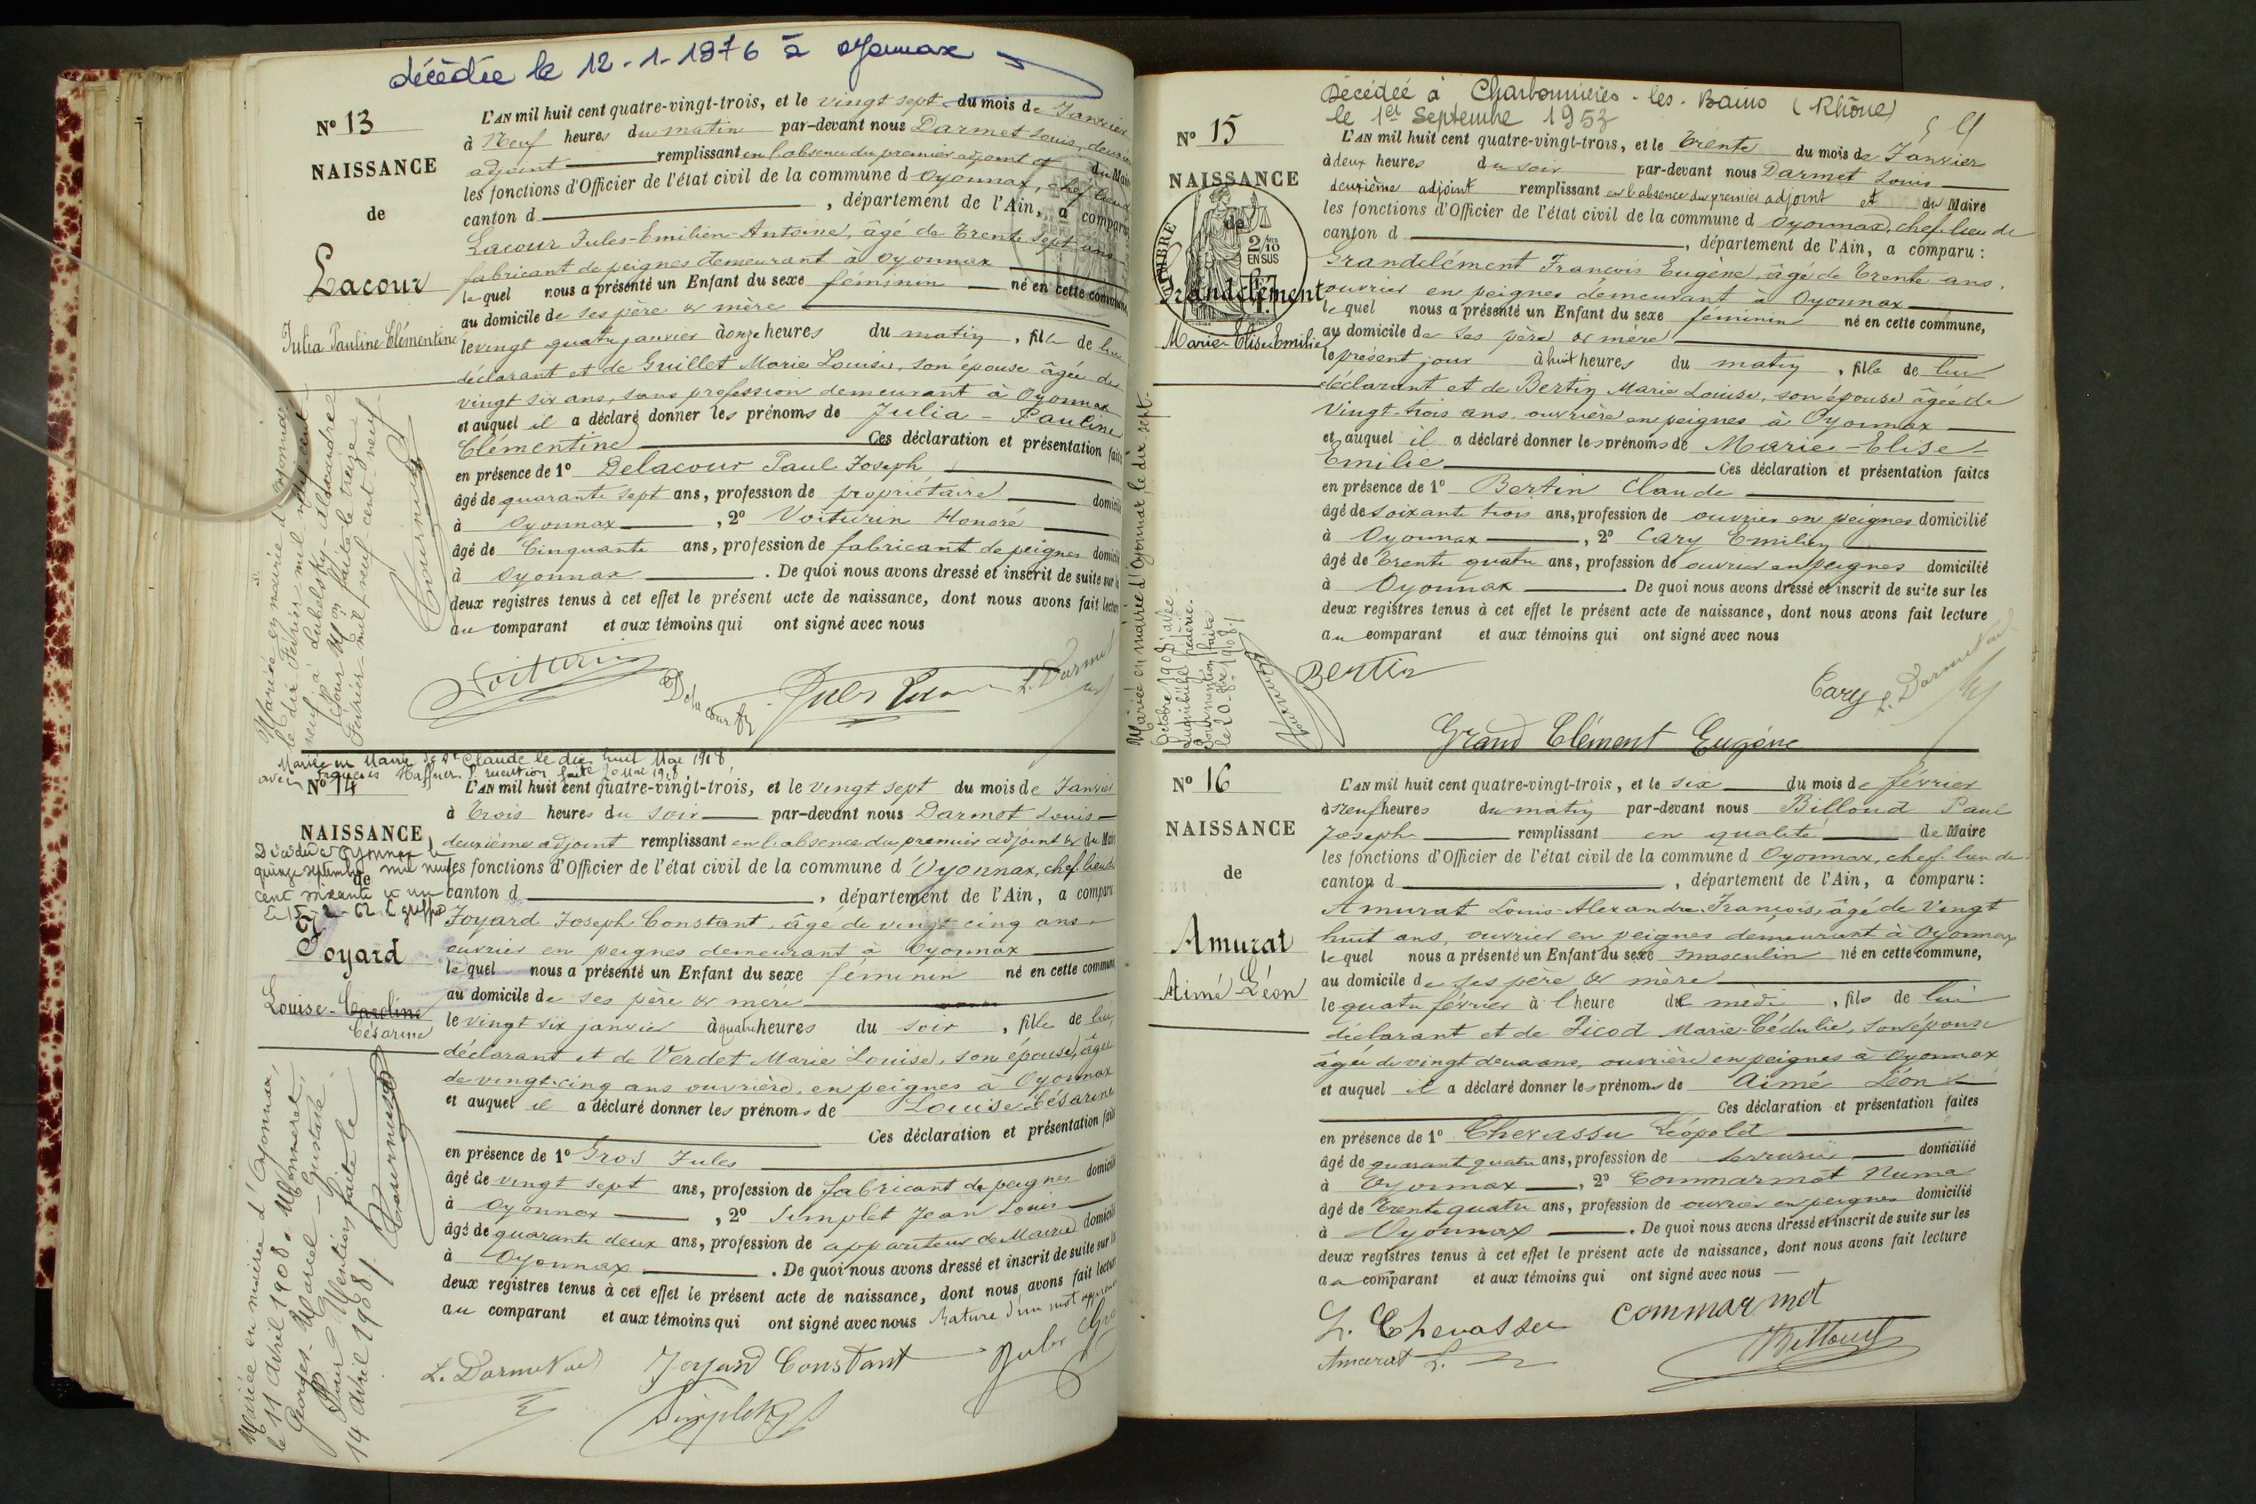 décédée le 12-1-1976 à Oyonnax
N° 13
NAISSANCE
de
Lacour
Julia Pauline Clémentine
L'AN mil huit cent quatre-vingt-trois, et le vingt sept du mois de Janvier
à Neuf heures du matin par-devant nous Darmet Louis, deuxième
adjoint remplissant en l'absence du premier adjoint et du Maire
les fonctions d'Officier de l'état civil de la commune d Oyonnax, chef lieu de
canton d , département de l'Ain, a comparu
Lacour Jules-Emilien-Antoine, âgé de Trente sept ans
fabricant de peignes demeurant à Oyonnax
lequel nous a présenté un Enfant du sexe féminin né en cette commune,
au domicile de ses père & mère
le vingt quatre janvier à onze heures du matin, fille de lui
déclarant et de Guillet Marie Louise, son épouse âgée de
vingt six ans, sans profession demeurant à Oyonnax
et auquel il a déclaré donner les prénoms de Julia - Pauline
Clémentine Ces déclaration et présentation faites
en présence de 1° Delacour Paul Joseph
âgé de quarante sept ans, profession de propriétaire domicilié
à Oyonnax , 2° Voiturin Honoré
âgé de Cinquante ans, profession de fabricant de peignes domicilié
à Oyonnax . De quoi nous avons dressé et inscrit de suite sur les
deux registres tenus à cet effet le présent acte de naissance, dont nous avons fait lecture
au comparant et aux témoins qui ont signé avec nous
Voiturin
Delacour
L. Darmet
Mariée en mairie d'Oyonnax
le dix Février mil neuf cent
neuf à Lubelsky-Alexandre
Pour Mon faite le treize
Février mil neuf-cent-neuf
Mariée en Mairie de St Claude le dix huit Mai 1918
avec François Haffner mention faite 20 Mai 1918
N° 14
NAISSANCE
de
Décédée à Oyonnax le
quinze septembre mil neuf
cent soixante et un
Joyard
Louise-Caroline
Césarine
L'AN mil huit cent quatre-vingt-trois, et le vingt sept du mois de Janvier
à Trois heures du soir par-devant nous Darmet Louis
deuxième adjoint remplissant en l'absence du premier adjoint & du Maire
les fonctions d'Officier de l'état civil de la commune d'Oyonnax, chef lieu de
canton d , département de l'Ain, a comparu
Joyard Joseph Constant, âgé de vingt cinq ans
ouvrier en peignes demeurant à Oyonnax
lequel nous a présenté un Enfant du sexe féminin né en cette commune
au domicile de ses père & mère
le vingt six janvier à quatre heures du soir, fille de lui,
déclarant et de Verdet Marie Louise, son épouse, âgée
de vingt-cinq ans ouvrière en peignes à Oyonnax
et auquel il a déclaré donner les prénoms de Louise Césarine
Ces déclaration et présentation faites
en présence de 1° Gros Jules
âgé de vingt sept ans, profession de fabricant de peignes domicilié
à Oyonnax , 2° Simplet Jean Louis
âgé de quarante deux ans, profession de appariteur de Mairie domicilié
à Oyonnax . De quoi nous avons dressé et inscrit de suite sur les
deux registres tenus à cet effet le présent acte de naissance, dont nous avons fait lecture
au comparant et aux témoins qui ont signé avec nous Rature d'un mot approuvée
L. Darmet
Joyard Constant
Jules Gros
Simplet
Mariée en mairie d'Oyonnax,
le 11 Avril 1908. Monnerat,
Georges-Marcel-Gustave.
Pour Mention faite le
14 Avril 1908
Décédée à Charbonnières-les-Bains (Rhône)
le 1er Septembre 1953
N° 15
NAISSANCE
de
TIMBRE
2/10
EN SUS
Grandclément
Marie-Elise Emilie
L'AN mil huit cent quatre-vingt-trois, et le Trente du mois de Janvier
à deux heures du soir par-devant nous Darmet Louis
deuxième adjoint remplissant en l'absence du premier adjoint et du Maire
les fonctions d'Officier de l'état civil de la commune d Oyonnax, chef-lieu de
canton d , département de l'Ain, a comparu :
Grandclément François Eugène, âgé de Trente ans,
ouvrier en peignes demeurant à Oyonnax
lequel nous a présenté un Enfant du sexe féminin né en cette commune,
au domicile de ses père & mère
le présent jour à huit heures du matin, fille de lui
déclarant et de Bertin Marie Louise, son épouse âgée de
Vingt-trois ans, ouvrière en peignes à Oyonnax
et auquel il a déclaré donner les prénoms de Marie-Elise-
Emilie Ces déclaration et présentation faites
en présence de 1° Bertin Claude
âgé de soixante trois ans, profession de ouvrier en peignes domicilié
à Oyonnax , 2° Cary Emilien
âgé de Trente quatre ans, profession de ouvrier en peignes domicilié
à Oyonnax De quoi nous avons dressé et inscrit de suite sur les
deux registres tenus à cet effet le présent acte de naissance, dont nous avons fait lecture
au comparant et aux témoins qui ont signé avec nous
Bertin
Cary
L. Darmet
Grand Clément Eugène
Mariée en mairie d'Oyonnax, le dix-sept
Octobre 1908 avec
Frédéric.
Pour mention faite
le 20 1908
N° 16
NAISSANCE
de
Amurat
Aimé-Léon
L'AN mil huit cent quatre-vingt-trois, et le six du mois de février
à Neuf heures du matin par-devant nous Billoud Paul
Joseph remplissant en qualité de Maire
les fonctions d'Officier de l'état civil de la commune d Oyonnax, chef-lieu de
canton d , département de l'Ain, a comparu :
Amurat Louis-Alexandre-François, âgé de Vingt
huit ans, ouvrier en peignes demeurant à Oyonnax
lequel nous a présenté un Enfant du sexe masculin né en cette commune,
au domicile de ses père & mère
le quatre février à l'heure de midi, fils de lui
déclarant et de Picod Marie-Cédulie, son épouse
âgée de vingt deux ans, ouvrière en peignes à Oyonnax
et auquel il a déclaré donner les prénoms de Aimé Léon
Ces déclaration et présentation faites
en présence de 1° Chevassu Léopold
âgé de quarant quatre ans, profession de serrurier domicilié
à Oyonnax , 2° Commarmot Numa
âgé de Trente quatre ans, profession de ouvrier en peignes domicilié
à Oyonnax . De quoi nous avons dressé et inscrit de suite sur les
deux registres tenus à cet effet le présent acte de naissance, dont nous avons fait lecture
au comparant et aux témoins qui ont signé avec nous
L. Chevassu
Commarmot
Amurat L.
Billoud